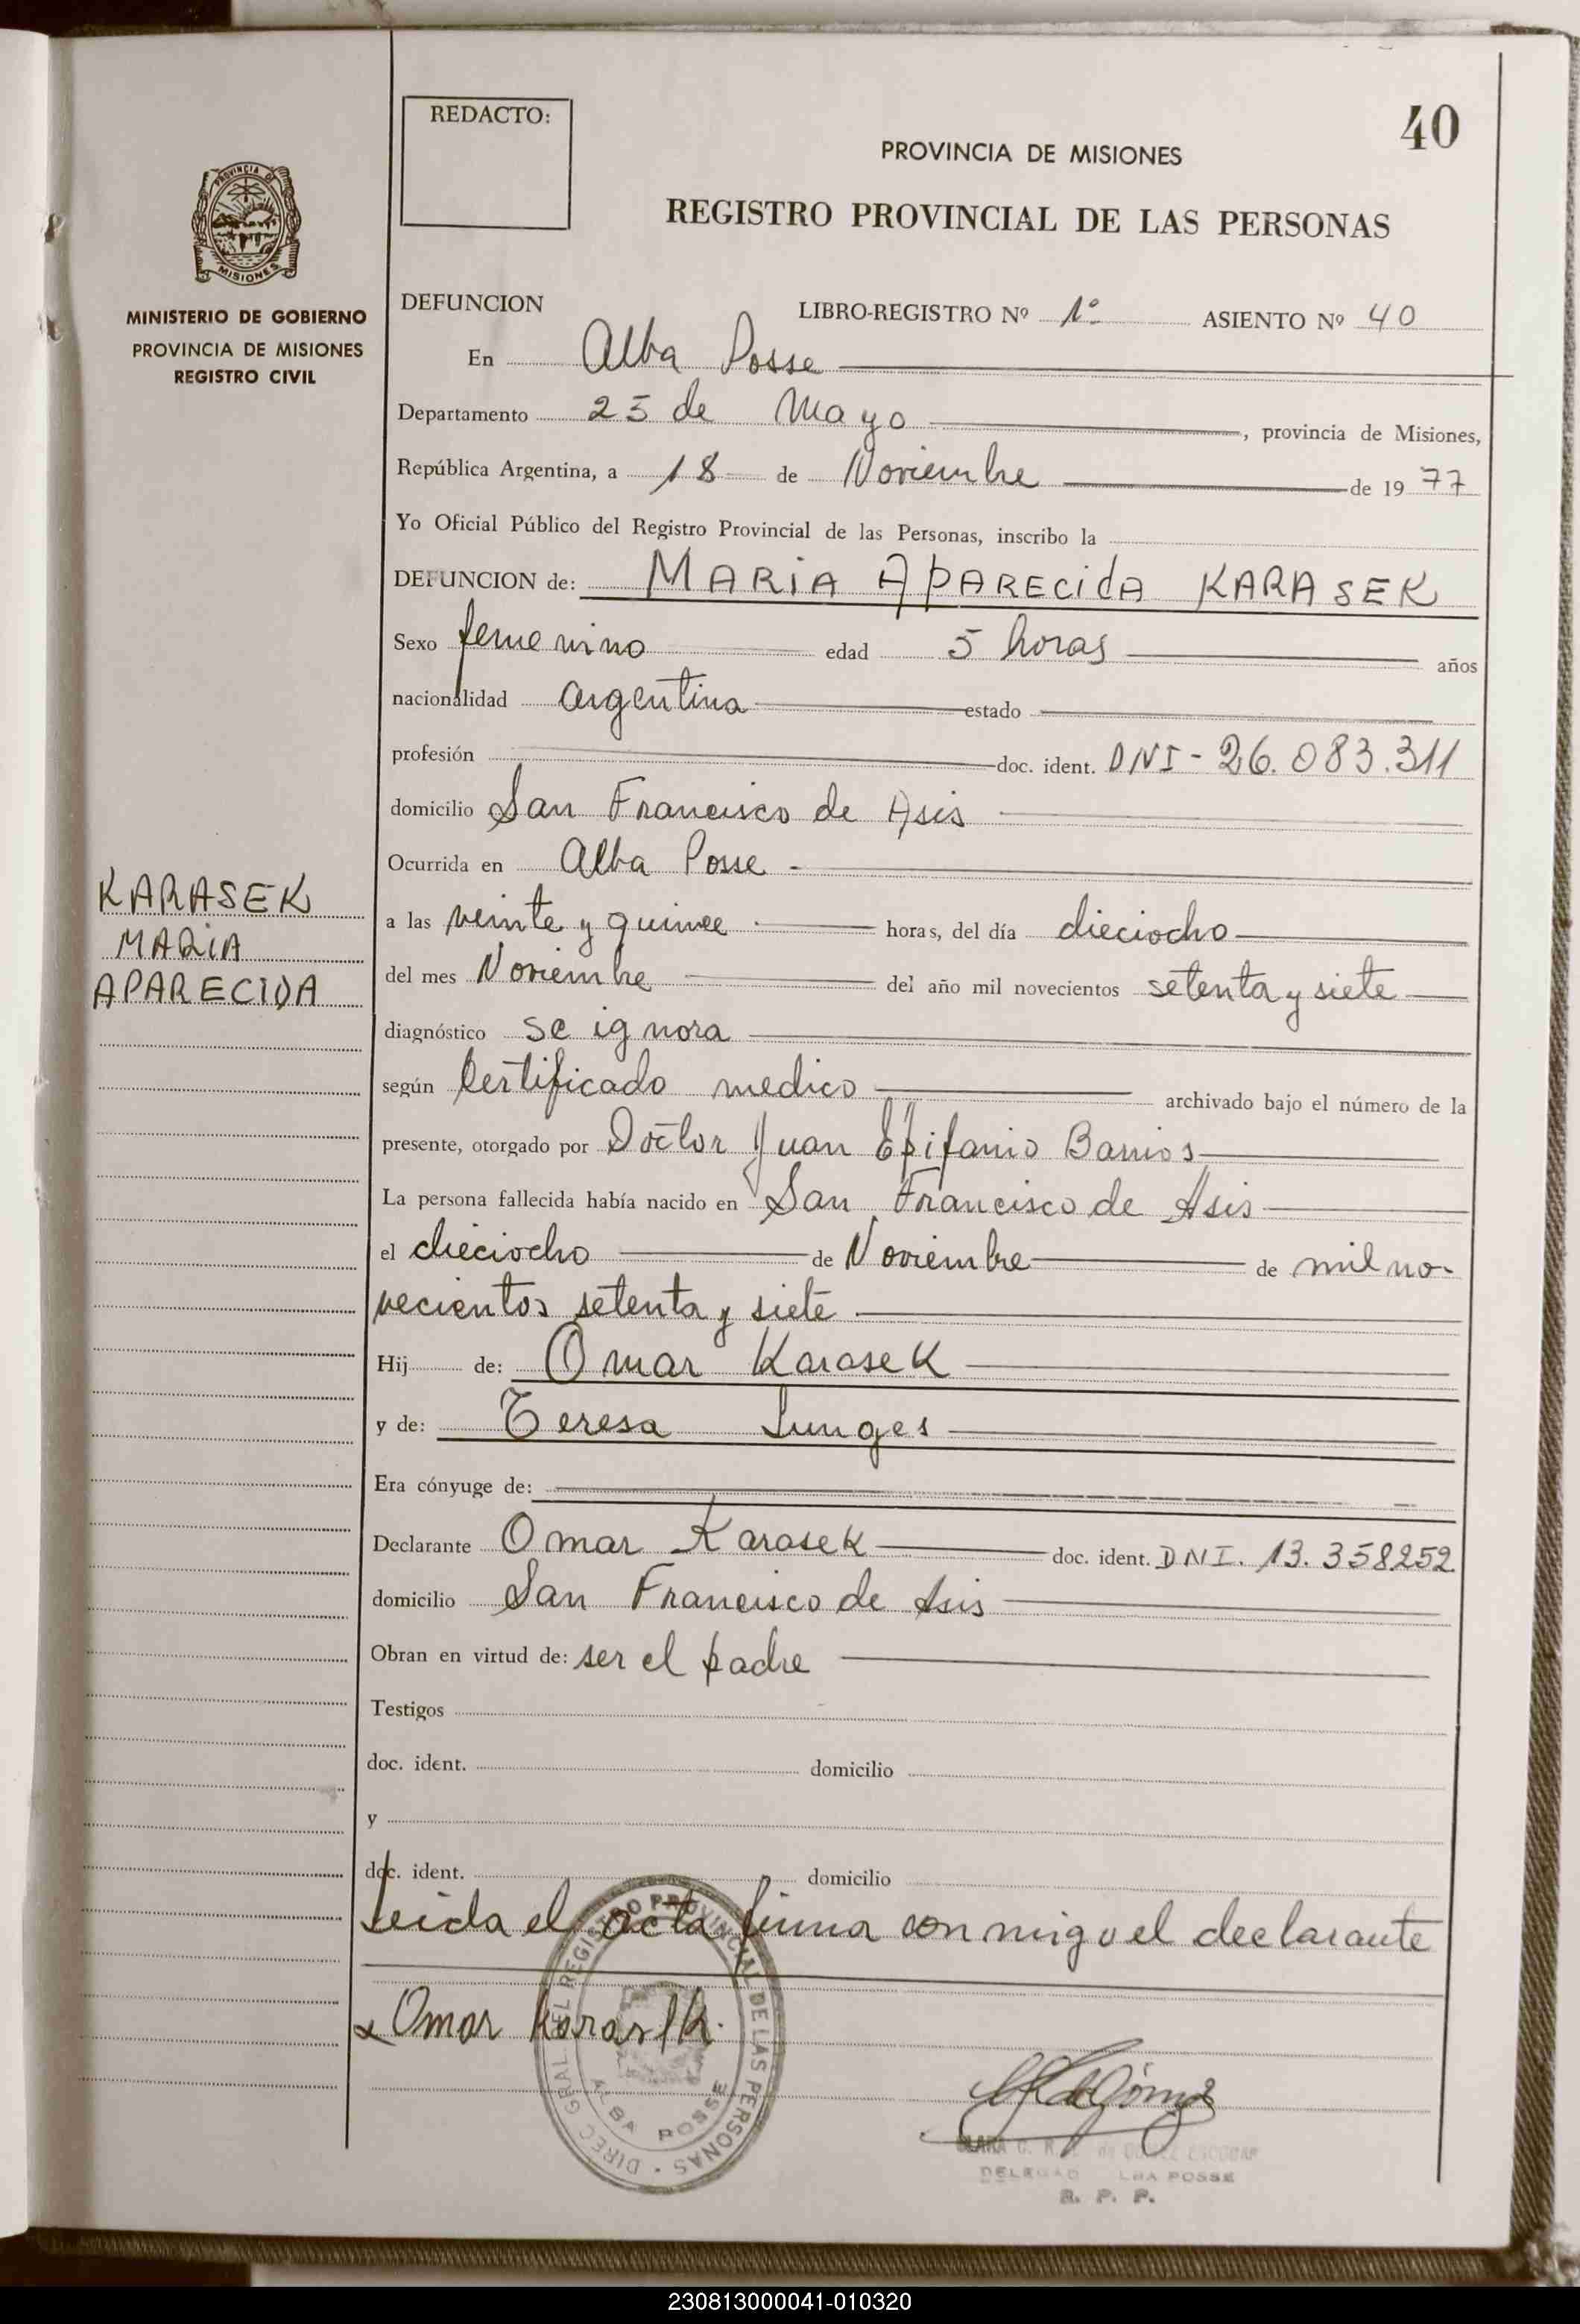 REDACTO:
40
PROVINCIA DE MISIONES
REGISTRO PROVINCIAL DE LAS PERSONAS
PROVINCIA DE
MISIONES
MINISTERIO DE GOBIERNO
PROVINCIA DE MISIONES
REGISTRO CIVIL
KARASEK
MARIA
APARECIDA
DEFUNCION LIBRO-REGISTRO Nº 1º ASIENTO Nº 40
En Alba Posse
Departamento 25 de Mayo, provincia de Misiones,
República Argentina, a 18 de Noviembre de 1977
Yo Oficial Público del Registro Provincial de las Personas, inscribo la
DEFUNCION de: MARIA APARECIdA KARASEK
Sexo femenino edad 5 horas años
nacionalidad argentina estado
profesión doc. ident. DNI - 26.083.311
domicilio San Francisco de Asis
Ocurrida en Alba Posse -
a las veinte y quince horas, del día dieciocho
del mes Noviembre del año mil novecientos setenta y siete
diagnóstico se ignora
según Certificado medico archivado bajo el número de la
presente, otorgado por Doctor Juan Epifanio Barrios
La persona fallecida había nacido en San Francisco de Asis
el dieciocho de Noviembre de mil no-
vecientos setenta y siete
Hij de: Omar Karasek
y de: Teresa Lunges
Era cónyuge de:
Declarante Omar Karasek doc. ident. DNI. 13.358252
domicilio San Francisco de Asis
Obran en virtud de: ser el padre
Testigos
doc. ident. domicilio
y
doc. ident. domicilio
Leida el acta firma conmigo el declarante
x Omar Karasek.
DIREC. GRAL. DEL REGISTRO PROVINCIAL DE LAS PERSONAS
ALBA POSSE
de Gómez
CLARA C. R. de GOMEZ ESCOBAR
ALBA POSSE
R. P. P.
230813000041-010320